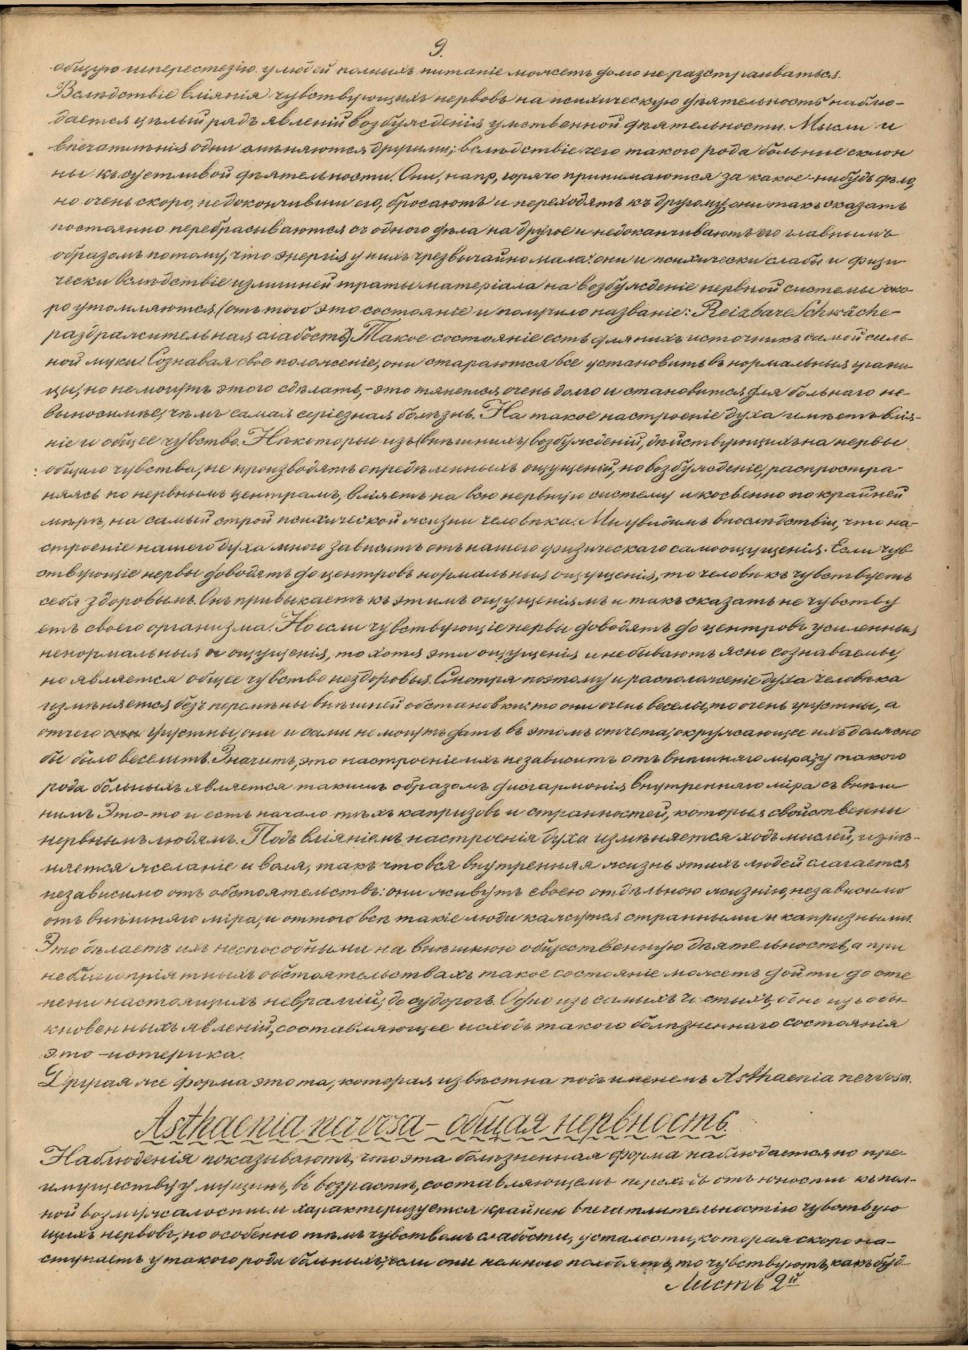 9.
общую гиперестезію у людей полныхъ питаніе можетъ долго не разстраиваться.
Вслѣдствіе вліянія чувствующихъ нервовъ на психическую дѣятельность наблю-
дается цѣлый рядъ явленій возбужденія умственной дѣятельности. Мысли и
впечатлѣнія одни смѣняются другими; вслѣдствіе чего такого рода больные склон
ны къ суетливой дѣятельности. Они, напр, горячо принимаются за какое-нибудь дѣло,
но очень скоро, недокончивши его, бросаютъ и переходятъ къ другому, они такъ сказать
постоянно перебрасываются съ одного дѣла на другое и недоканчиваютъ его главнымъ
образомъ потому, что энергія у нихъ чрезвычайно мала: они и психически слабы и физи-
чески вслѣдствіе излишней траты матеріала на возбужденіе нервной системы ско-
ро утомляются (отъ того это состояніе и получило названіе: Reizbare Schwäche-
раздражительная слабость). Такое состояніе есть для нихъ источникъ самой силь-
ной муки. Сознавая свое положеніе, они стараются все установить въ нормальныя грани-
цы, но не могутъ этого сдѣлать, - это тянется очень долго и становится для больнаго не-
выносимѣе, чѣмъ самая серіезная болѣзнь. На такое настроеніе духа имѣетъ влія-
ніе и общее чувство. Нѣкоторыя изъ (внѣшнихъ) возбужденій, дѣйствующихъ на нервы
общаго чувства, не производятъ опредѣленныхъ ощущеній, но возбужденіе, распростра
няясь по нервнымъ центрамъ, вліяетъ на всю нервную систему и косвенно по крайней
мѣрѣ, на самый строй психической жизни человѣка. Мы увидимъ впослѣдствіи, что на-
строеніе нашего духа много зависитъ отъ нашего физическаго самоощущенія. Если чув
ствующіе нервы доводятъ до центровъ нормальныя ощущенія, то человѣкъ чувствуетъ
себя здоровымъ. Онъ привыкаетъ къ этимъ ощущеніямъ и такъ сказать не чувству
етъ своего организма. Но если чувствующіе нервы доводятъ до центровъ усиленныя
ненормальныя ощущенія, то хотя эти ощущенія и не бываютъ ясно сознаваемы,
но является общее чувство нездоровья. Смотря поэтому и расположеніе духа человѣка
измѣняется безъ перемѣны внѣшней обстановки: то они очень веселы, то очень грустны, а
отчего грустны, они и сами не могутъ дать въ этомъ отчета; окружающее ихъ должно
бы было веселить. Значитъ, это настроеніе ихъ независитъ отъ внѣшняго міра; у такого
рода больныхъ является такимъ образомъ дисгармонія внутренняго міра съ внѣш
нимъ. Это-то и есть начало тѣхъ капризовъ и странностей, которыя свойственны
нервнымъ людямъ. Подъ вліяніемъ настроенія духа измѣняется ходъ мыслей, измѣ-
няется желаніе и воля, такъ что вся внутренняя жизнь этихъ людей слагается
независимо отъ обстоятельствъ: они живутъ своею отдѣльною жизнію, независимо
отъ внѣшняго міра, и оттого всѣ такіе люди кажутся странными и капризными.
Это дѣлаетъ ихъ неспособными на внѣшнюю общественную дѣятельность, а при
неблагопріятныхъ обстоятельствахъ такое состояніе можетъ дойти до сте
пени настоящихъ невралгій, до судорогъ. Одно изъ самыхъ частыхъ, одно изъ обы-
кновенныхъ явленій, составляющее исходъ такого болѣзненнаго состоянія
это - истерика.
Другая же форма это та, которая извѣстна подъ именемъ Asthaenia nervosa.
Asthaenia nervosa - общая нервность.
Наблюденія показываютъ, что эта болѣзненная форма наблюдается по пре-
имуществу у мущинъ, въ возрастѣ, составляющемъ переходъ отъ юности къ пол-
ной возмужалости и характеризуется крайнею впечатлительностію чувствую
щихъ нервовъ, но особенно тѣмъ чувствомъ слабости, усталости, которая скоро на-
ступаетъ у такого рода больныхъ; если они немного походятъ, то чувствуютъ, какъ буд-
Листъ 2й